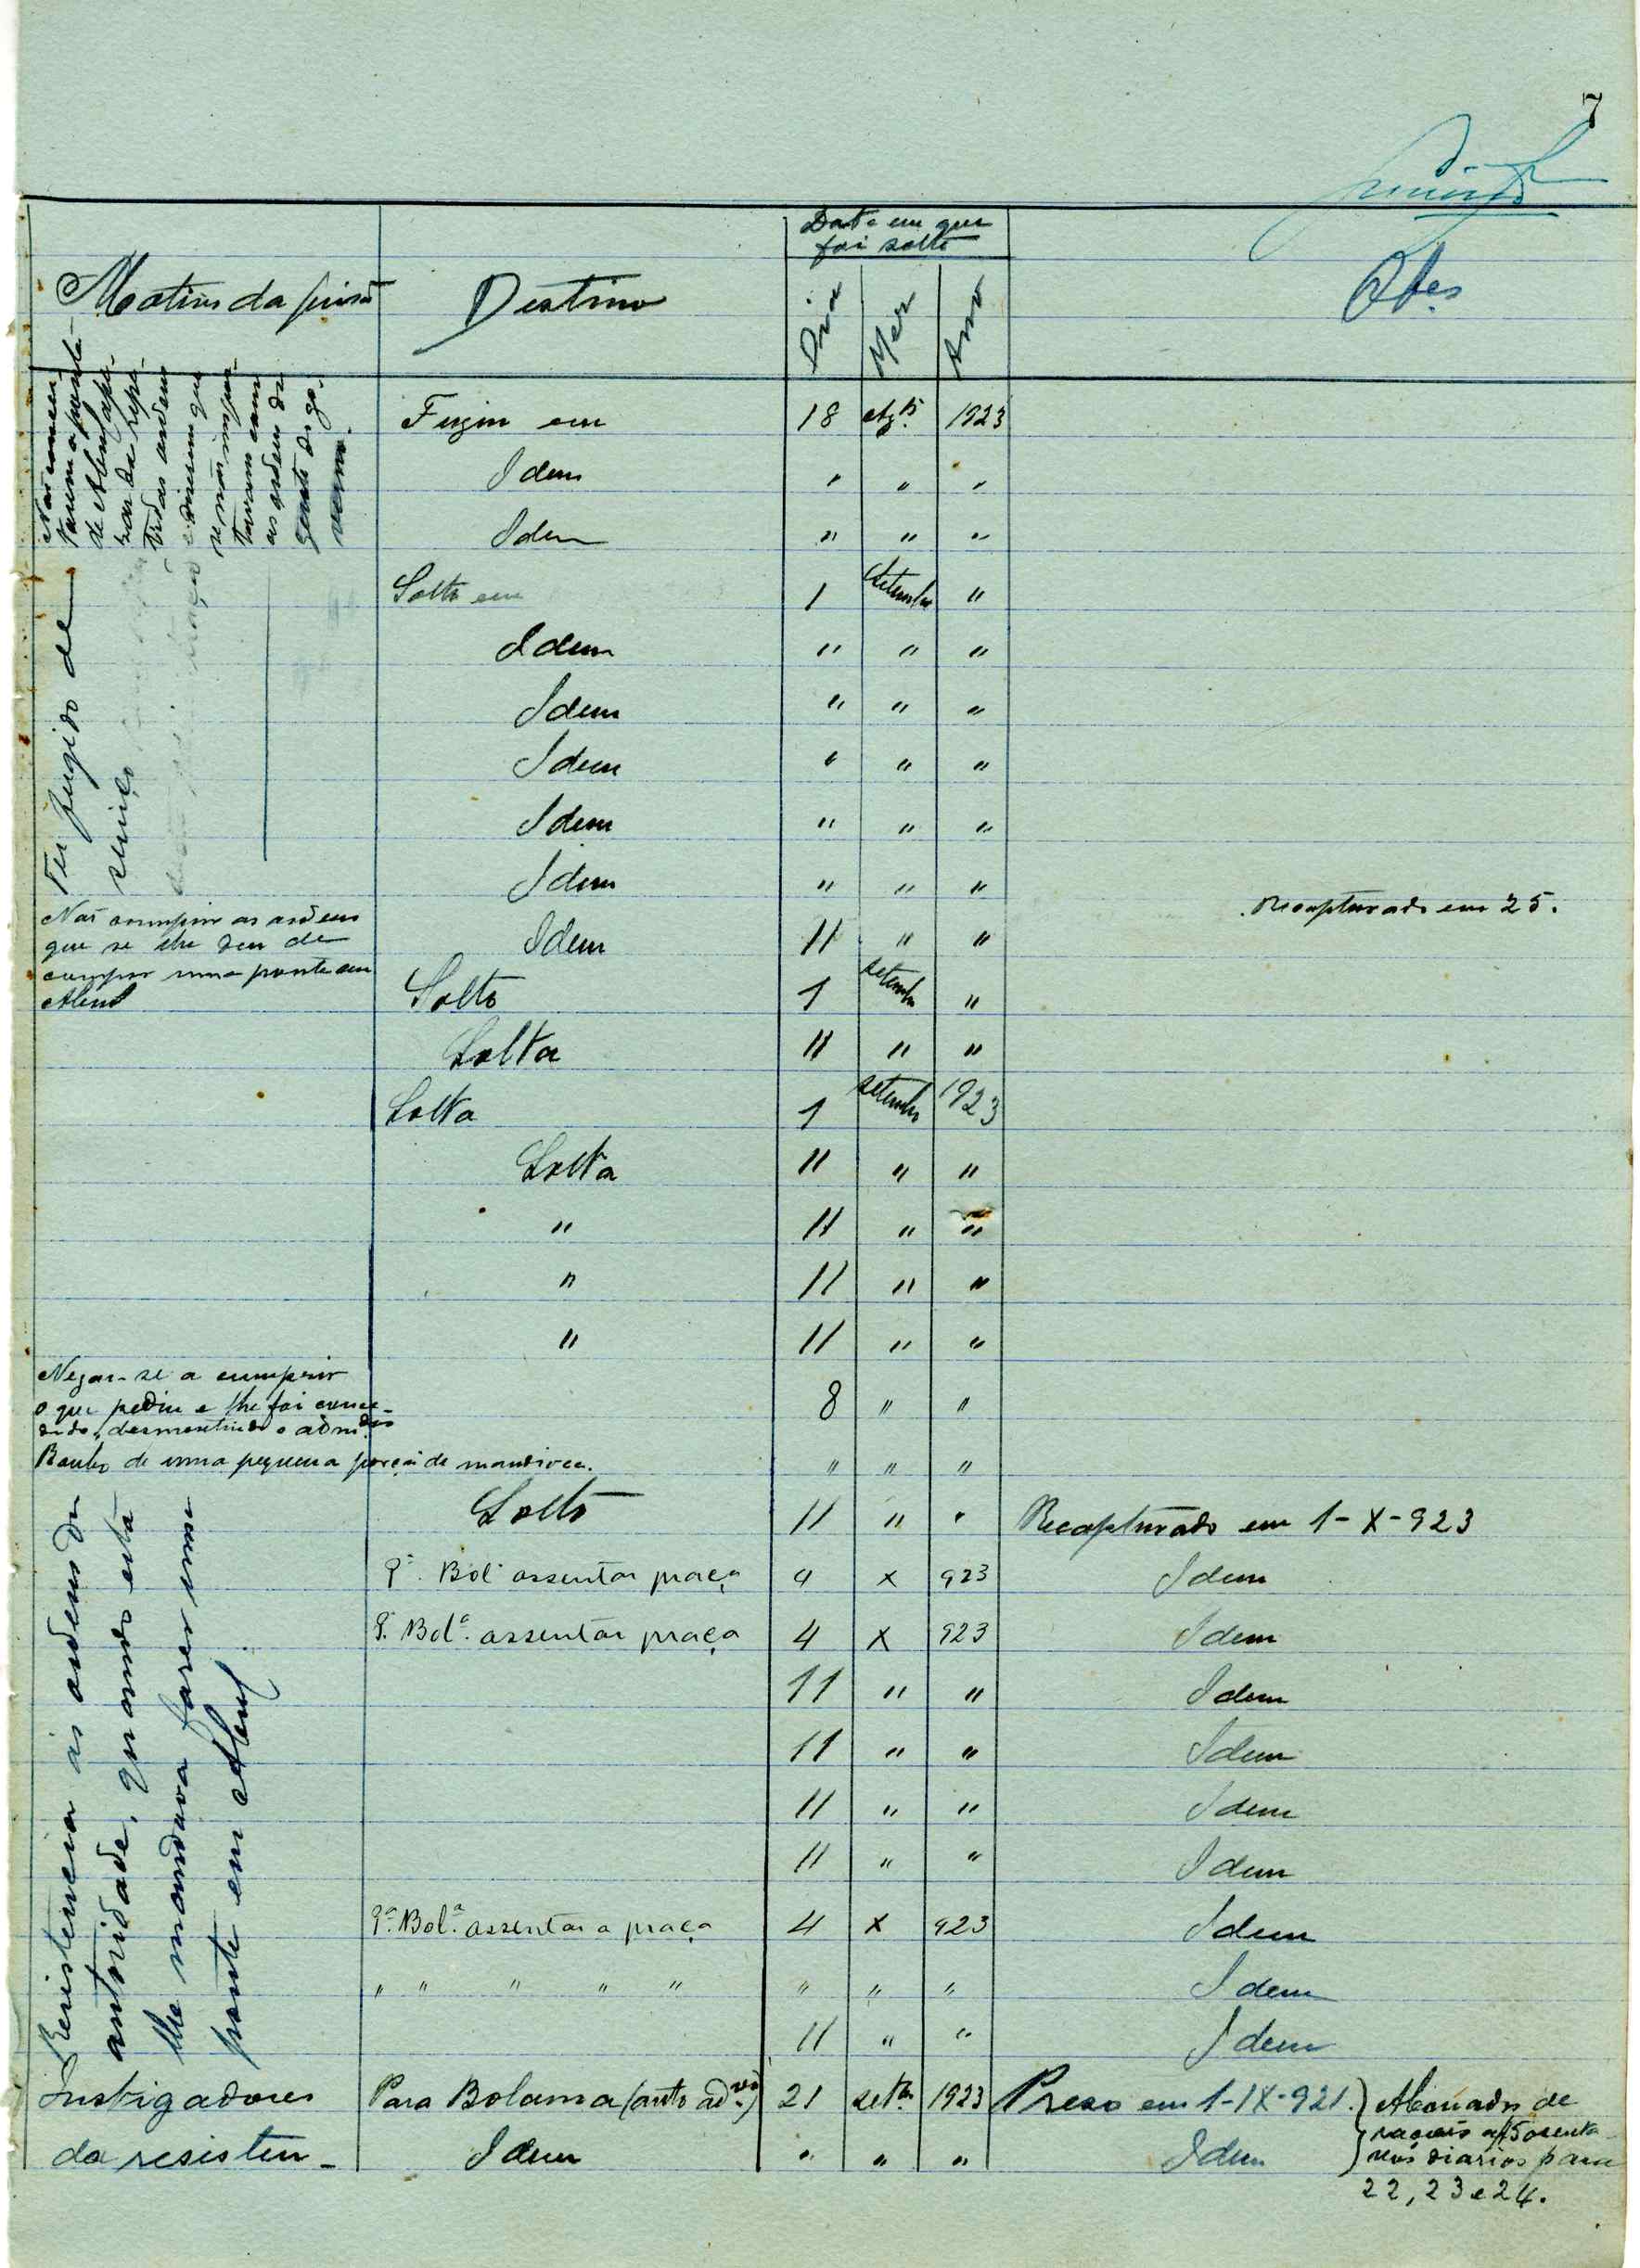 7
Data em que
foi solto
Motivo da prisão
Destino
Dia
Mez
Ano
Obes
Não concer-
tarem a ponte
de Alem, ape-
zar da repe-
tidas ordens
e dizerem que
se não impor-
tavam com
as ordens da
gente do go-
verno.
Fugiu em 18 Agto 1923
Idem " " "
Idem " " "
Ter fugido de
serviço
Solto em 1 Setembro "
Idem " " "
Idem " " "
Idem " " "
Idem " " "
Idem " " " Recapturado em 25.
Não cumprir as ordens
que se lhe deu de
compor uma ponte em
Idem 11 " "
Solto 1 setembro "
Solta 11 " "
Solta 1 setembro 1923
Solta 11 " "
" 11 " "
" 11 " "
" 11 " "
Negar-se a cumprir
o que pediu e lhe foi conce-
dido, desmentindo o
8 " "
Roubo de uma pequena porção de mandioca. " " "
Resistencia ás ordens da
autoridade, quando esta
lhe mandava fazer uma
ponte em
Solto 11 " " Recapturado em 1-X-923
Pa. Bola assentar praça 4 X 923 Idem
Pa. Bola. assentar praça 4 X 923 Idem
11 " " Idem
11 " " Idem
11 " " Idem
11 " " Idem
Pa. Bola. assentar a praça 4 X 923 Idem
" " " " " " " " Idem
11 " " Idem
Instigadores
da resisten-
Para Bolama (auto advo.) 21 setbo 1923 Preso em 1-IX-921.
Idem " " " Idem
Abonados de
rações a 15 centa-
vos diarios para
22, 23 e 24.